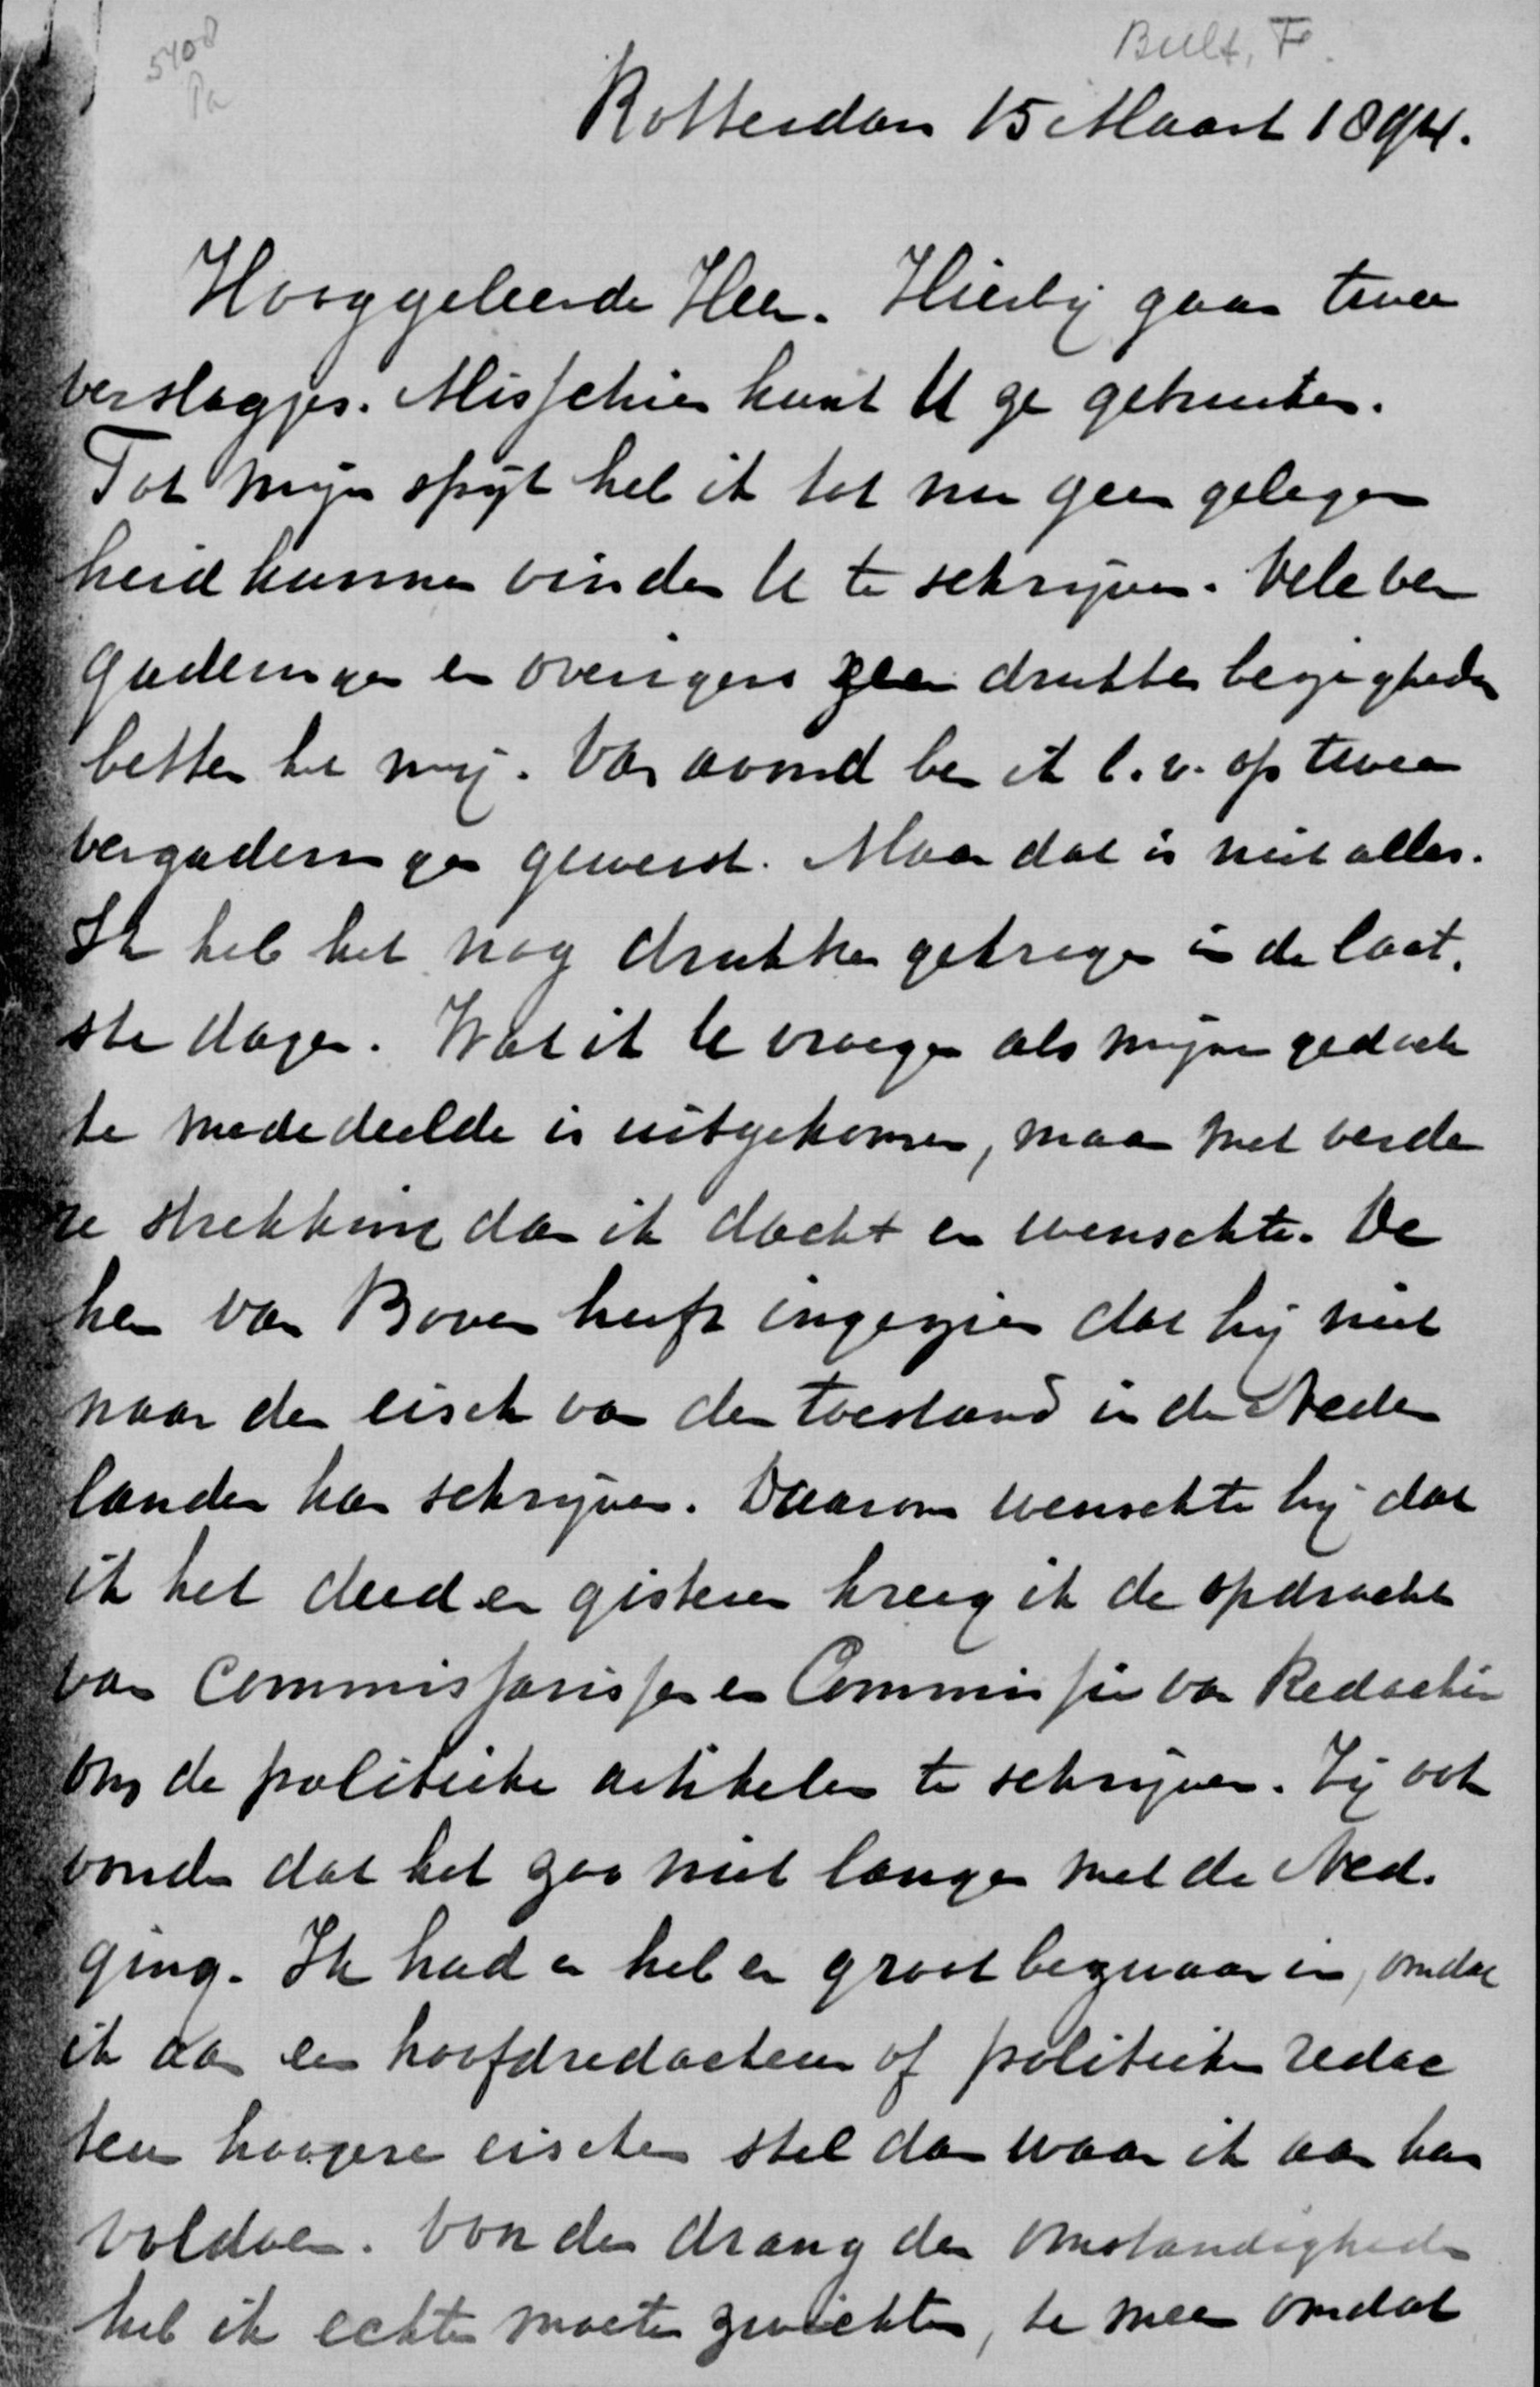 5408
Pa
Bult, F.
Rotterdam 15 Maart 1894.
Hooggeleerde Heer. Hierbij gaan twee
verslagjes. Misschien kunt U ze gebruiken.
Tot mijn spijt heb ik tot nu geen gelegen
heid kunnen vinden U te schrijven. Vele ver
gaderingen en overigens zeer drukke bezigheden
letten het mij. Van avond ben ik b.v. op twee
vergaderingen geweest. Maar dat is niet alles.
Ik heb het nog drukker gekregen in de laat.
ste dagen. Wat ik U vroeger als mijne gedach
te mededeelde is uitgekomen, maar met verde
re strekking dan ik dacht en wenschte. De
heer van Boven heeft ingezien dat hij niet
naar den eisch van den toestand in de Neder
lander kan schrijven. Daarom wenschte hij dat
ik het deed en gisteren kreeg ik de opdracht
van Commissarissen en Commissie van Redactie
om de politieke artikelen te schrijven. Zij ook
vonden dat het zoo niet langer met de Ned.
ging. Ik had en heb er groot bezwaar in, omdat
ik aan een hoofdredacteur of politieken redac
teur hoogere eischen stel dan waar ik aan kan
voldoen. Voor den drang der omstandigheden
heb ik echter moeten zwichten, te meer omdat